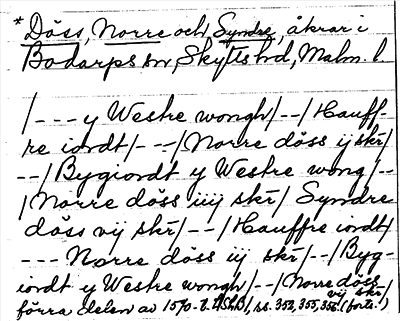 * Döss, Norre och Syndre, åkrar i
Bodarps sn, Skytts hd, Malm. l.
/--- y Westre wongh/--/Hauff-
re iordt/---/Norre döss ij skr/
--/Bygiordt y Westre wong/--
/Norre döss iiij skr/ Syndre
döss vij skr/--/Hauffre iordt/
--- Norre döss iij skr/--/Byg-
iordt y Westre wongh/--/Norre döss
vij skr/
förra delen av 1570-t. LSLB, ss. 353, 355, 356. (forts.!)